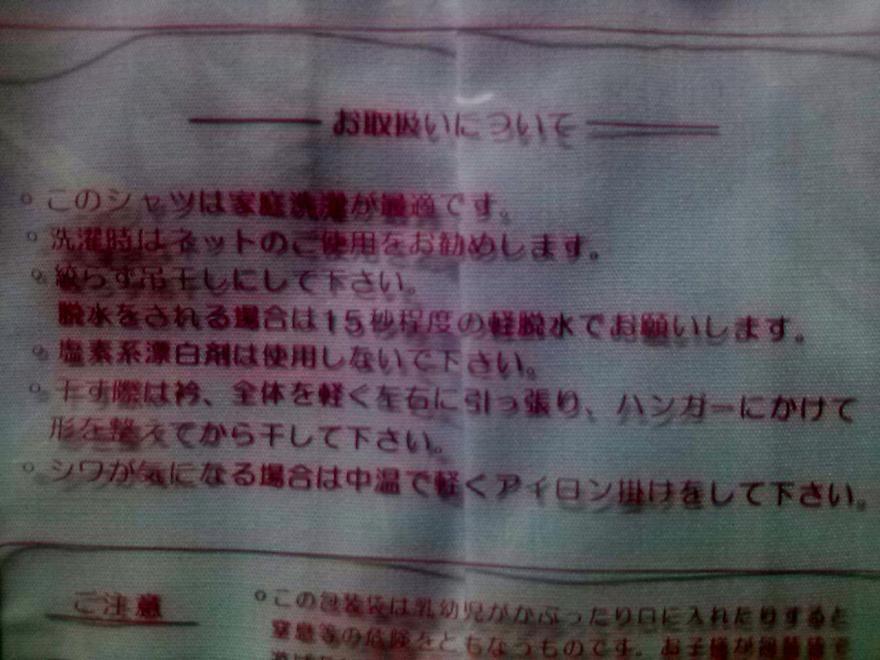 お取扱いについて
。このシャツは家庭洗濯が最適です。
。洗濯時はネットのご使用をお勧めします。
。絞らず吊干しにして下さい。
脱水をされる場合は15秒程度の軽脱水でお願いします。
。塩素系漂白剤は使用しないで下さい。
。干す際は衿、全体を軽く左右に引っ張り、ハンガーにかけて
形を整えてから干して下さい。
。シワが気になる場合は中温で軽くアイロン掛けをして下さい。
ご注意
。この包装袋は乳幼児がかぶったり口に入れたりすると
窒息等の危険をともなうものです。お子様が